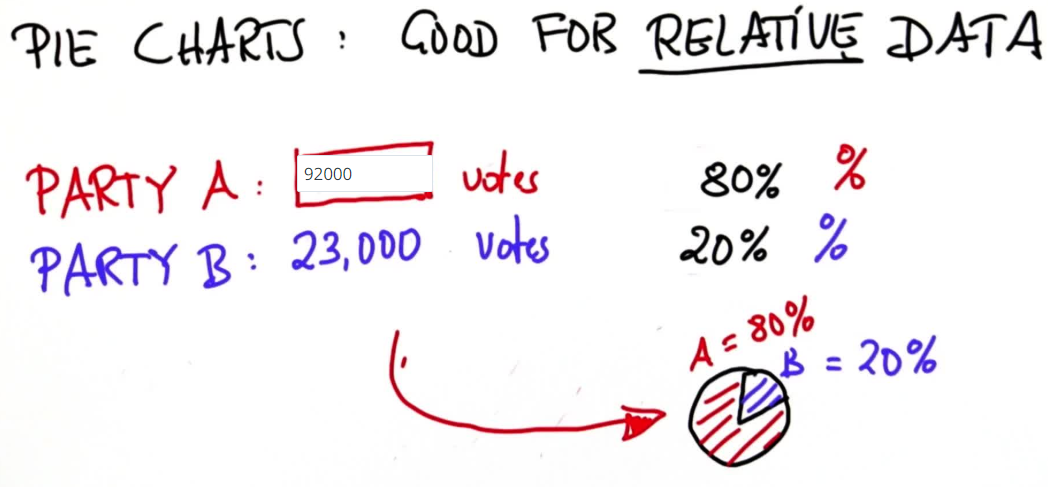 PIE CHARTS : GOOD FOR RELATIVE DATA
PARTY A : 92000 votes 80% %
PARTY B : 23,000 votes 20% %
A = 80%
B = 20%